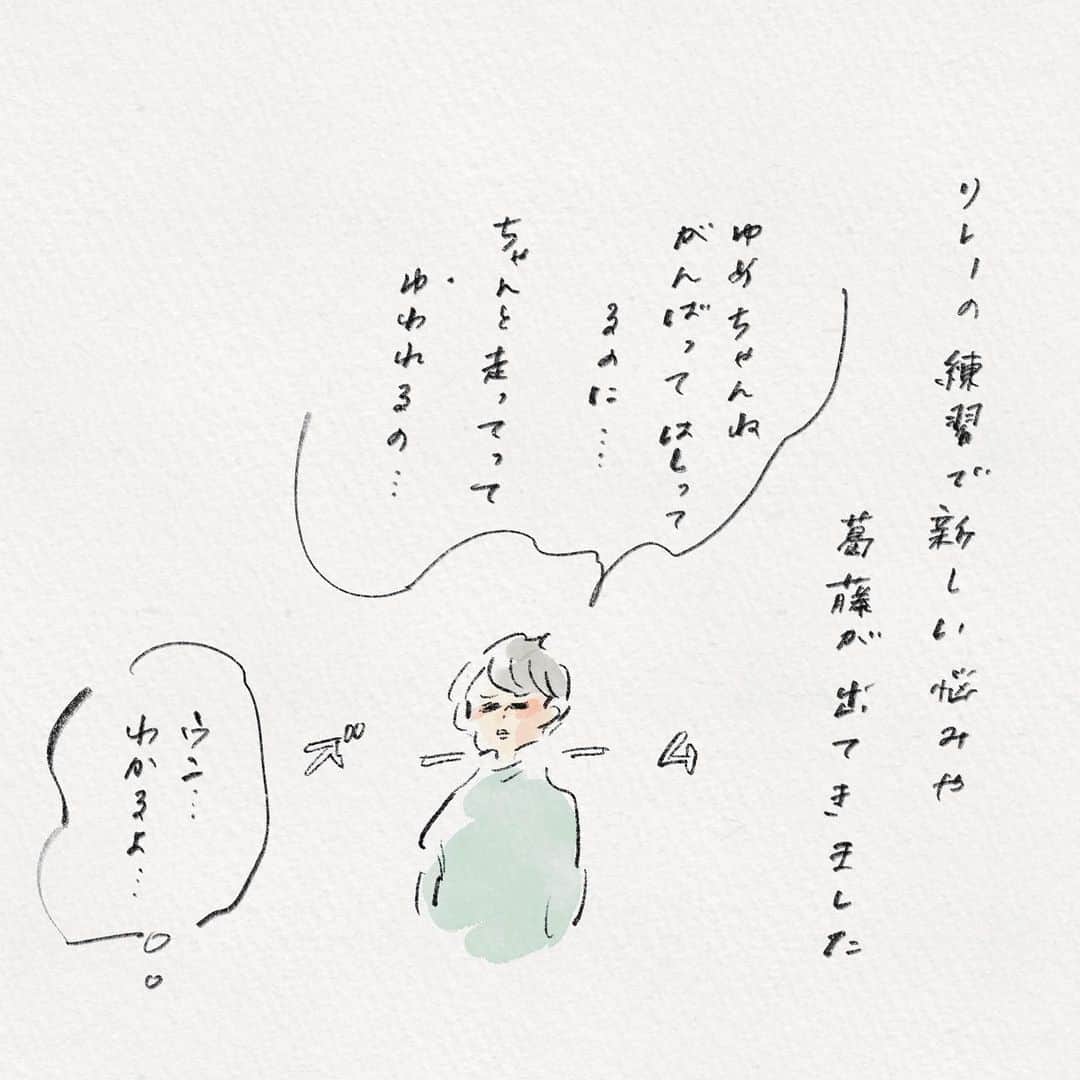 リレーの練習で新しい悩みや
葛藤が出てきました
ゆめちゃんね
がんばってはしって
るのに…
ちゃんと走ってって
ゆわれるの…
ズーーム
ウン…
わかるよ…